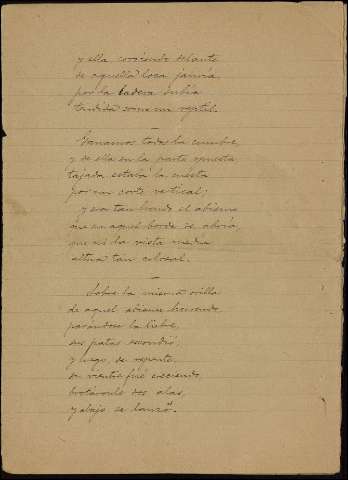 y ella corriendo delante
de aquella loca jauría
por la ladera subía
tendida como un reptil.
Ganamos todos la cumbre,
y de ella en la parte opuesta
tajada estaba la cuesta
por un corte vertical;
y era tan hondo el abismo
que en aquel borde se abría,
que no la vista medía
altura tan colosal.
Sobre la misma orilla
de aquel abismo horrendo
parándose la liebre,
sus patas escondió;
y luego, de repente,
su vientre fué creciendo,
brotáronle dos alas,
y abajo se lanzó.